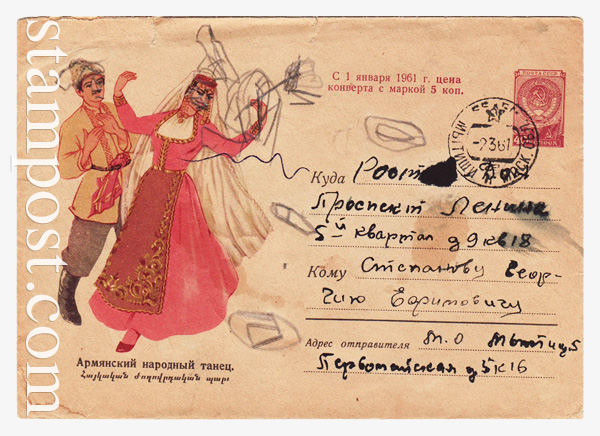 stampost.com
С 1 января 1961 г. цена
конверта с маркой 5 коп.
ПОЧТА СССР
Куда
Проспект Ленина
5й квартал д 9 кв 18
Кому Степанову Геор-
гию Ефимовичу
Адрес отправителя М.О Мытищи 5
Первомайская д 5 к 16
Армянский народный танец.
Հայկական ժողովրդական պար։